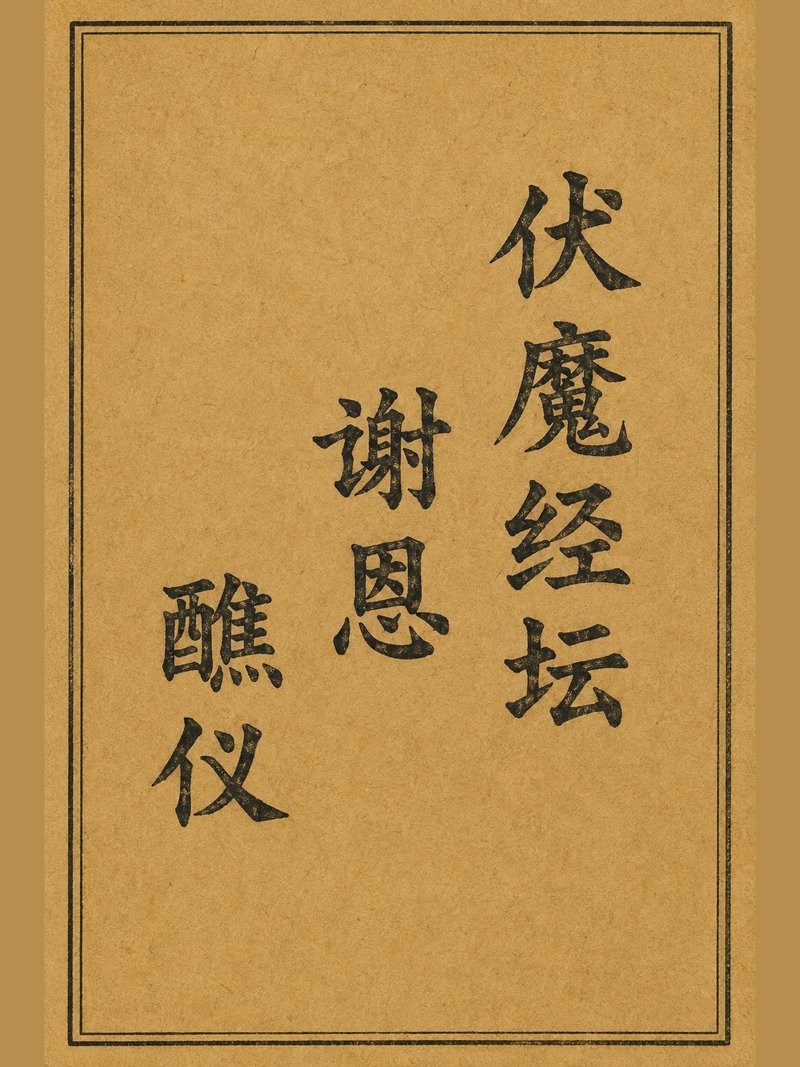 伏魔经坛
谢恩
醮仪